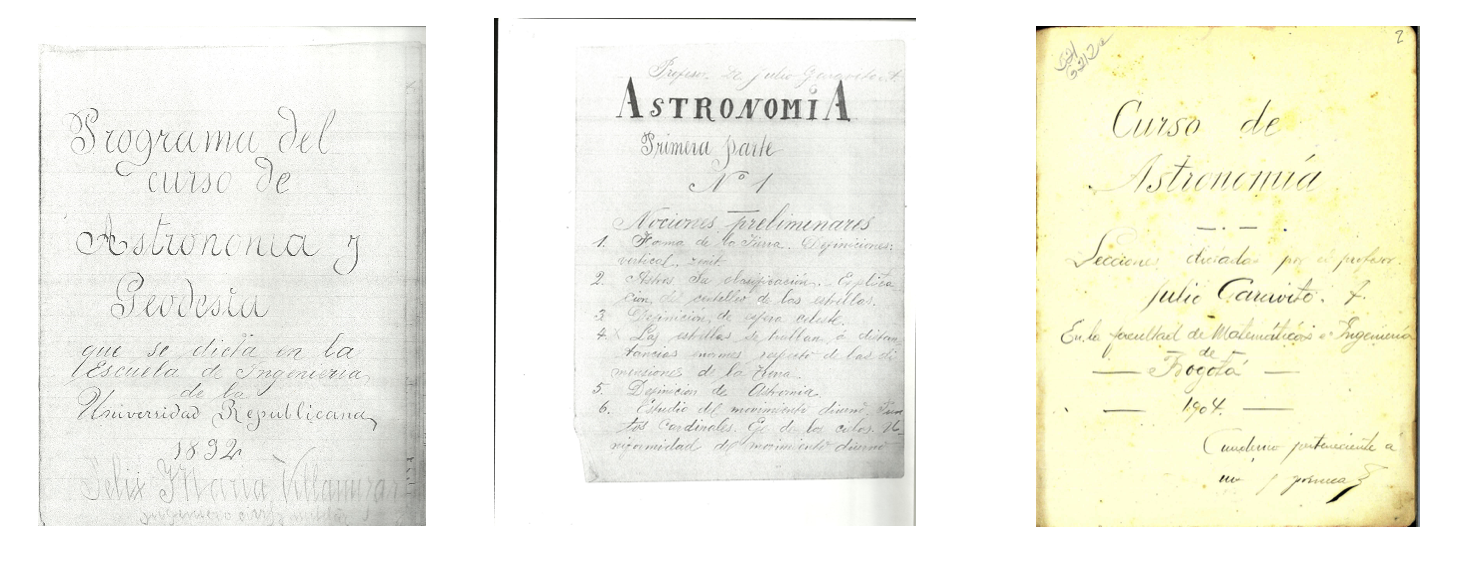 Programa del
curso de
Astronomia y
Geodesia
que se dicta en la
Escuela de Ingenieria,
de la
Universidad Republicana,
1892
Felix Maria Villamizar
Profesor. Dr Julio Garavito A
ASTRONOMIA
Primera parte
Nº 1
Nociones preliminares
1. Forma de la Tierra. Definiciones:
vertical, zenit
2. Astros Su clasificación. Explica
cion del centelleo de las estrellas.
3 Definicion de esfera celeste.
4. Las estrellas se hallan á distan
tancias enormes respecto de las di
mensiones de la Tierra.
5. Definicion de Astromia.
6. Estudio del movimiento diurno. Pun
tos Cardinales. Eje de los cielos. U-
niformidad del movimiento diurno
2
Curso de
Astronomía
Lecciones dictadas por el profesor.
Julio Garavito. A.
En la facultad de Matemáticas e Ingeniería
de
Bogotá
1904.
Cuaderno perteneciente á